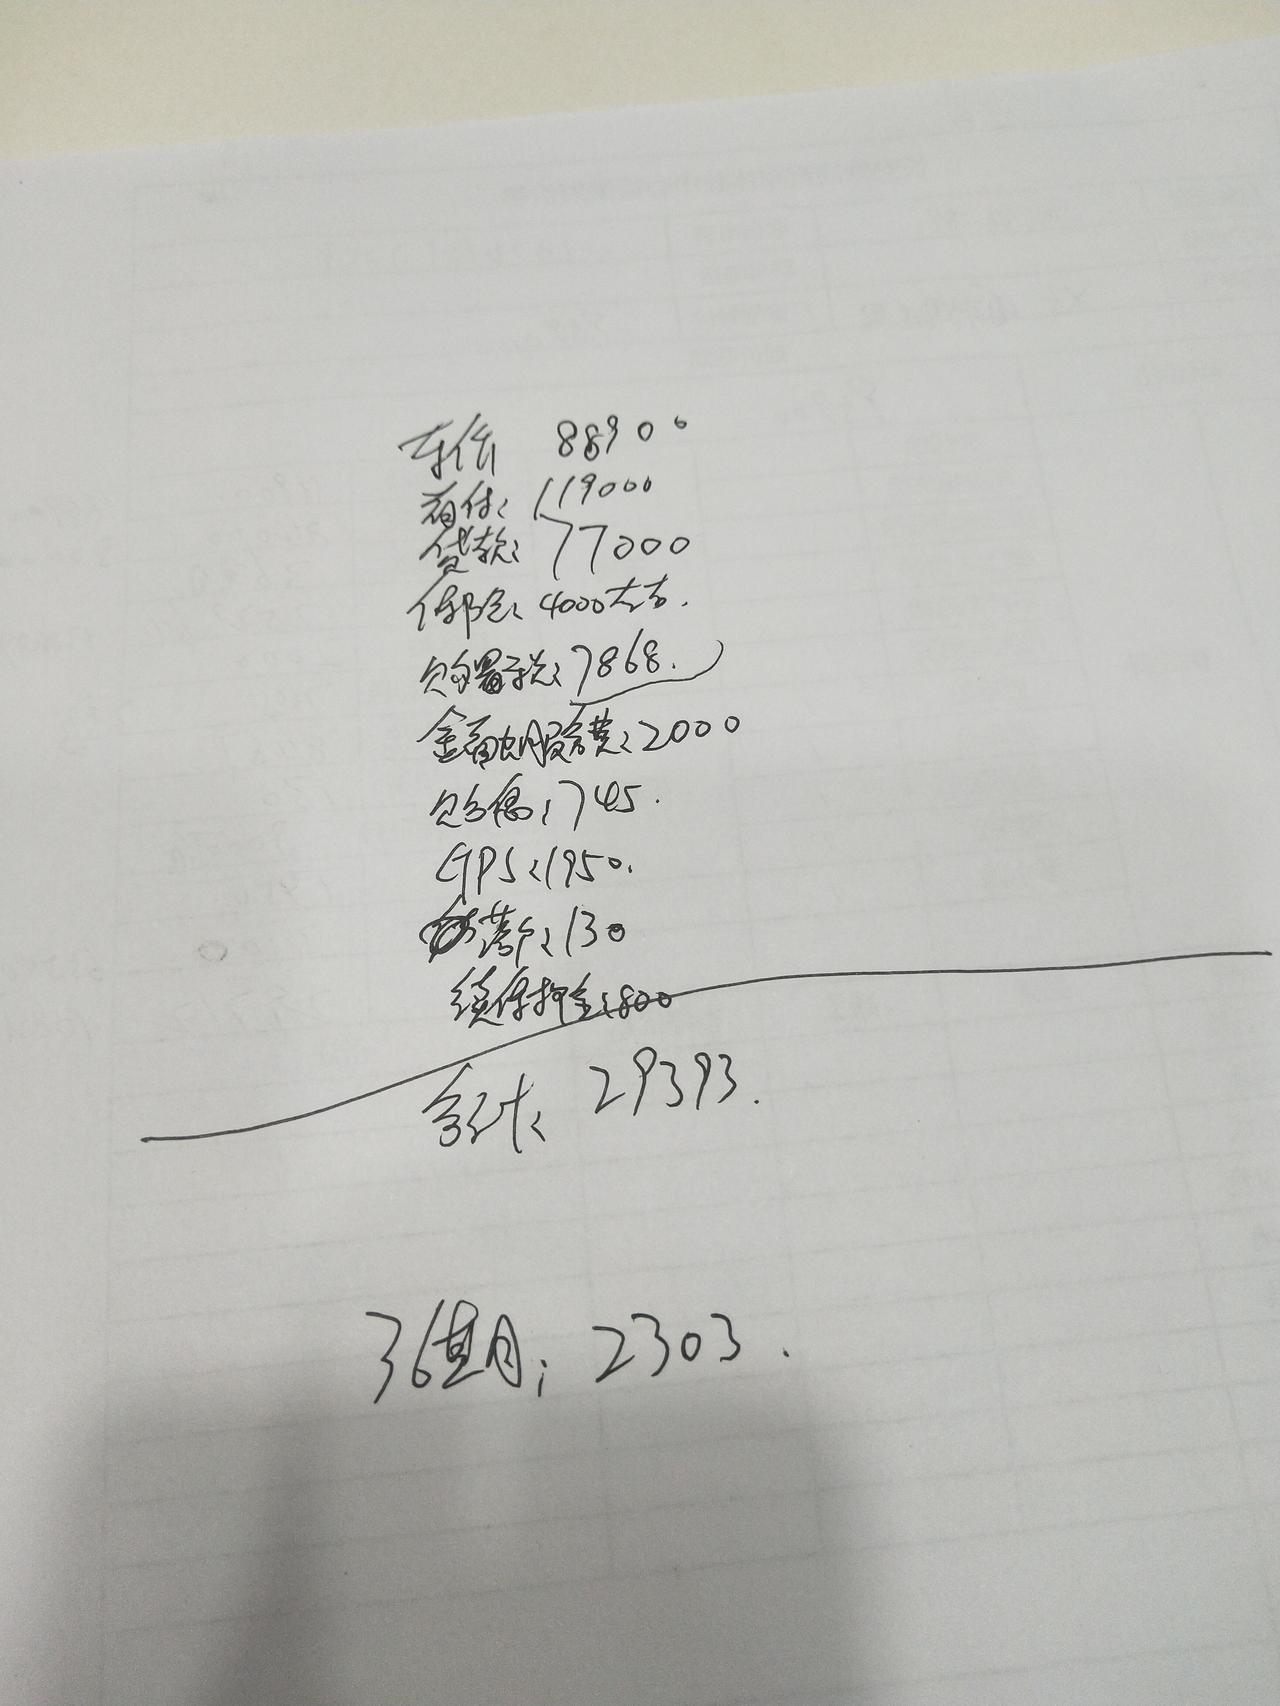 车价 88900
首付: 119000
贷款: 77000
保险: 4000左右.
购置税: 7868.
金融服务费: 2000
贴息: 745.
GPS: 1950.
落户: 130
续保押金: 800
合计: 29393.
36期: 2303.